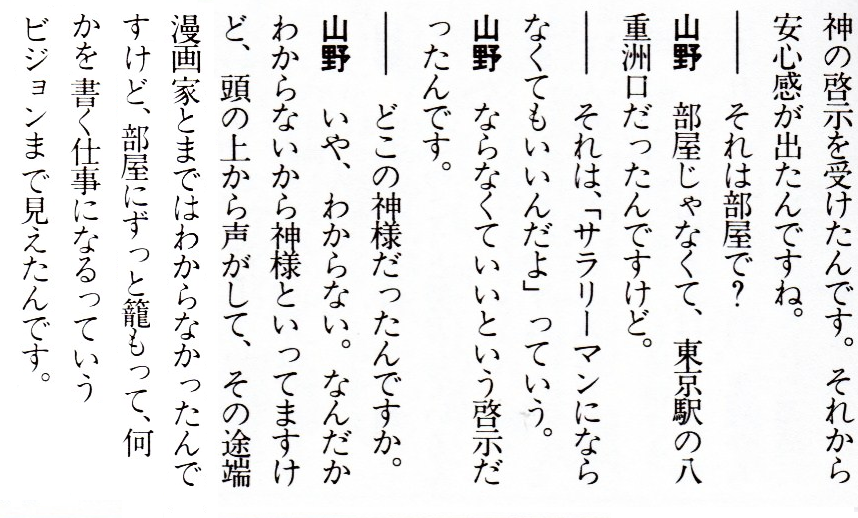 神の啓示を受けたんです。それから
安心感が出たんですね。
── それは部屋で？
山野　部屋じゃなくて、東京駅の八
重洲口だったんですけど。
── それは、「サラリーマンになら
なくてもいいんだよ」っていう。
山野　ならなくていいという啓示だ
ったんです。
── どこの神様だったんですか。
山野　いや、わからない。なんだか
わからないから神様といってますけ
ど、頭の上から声がして、その途端
漫画家とまではわからなかったんで
すけど、部屋にずっと籠もって、何
かを書く仕事になるっていう
ビジョンまで見えたんです。